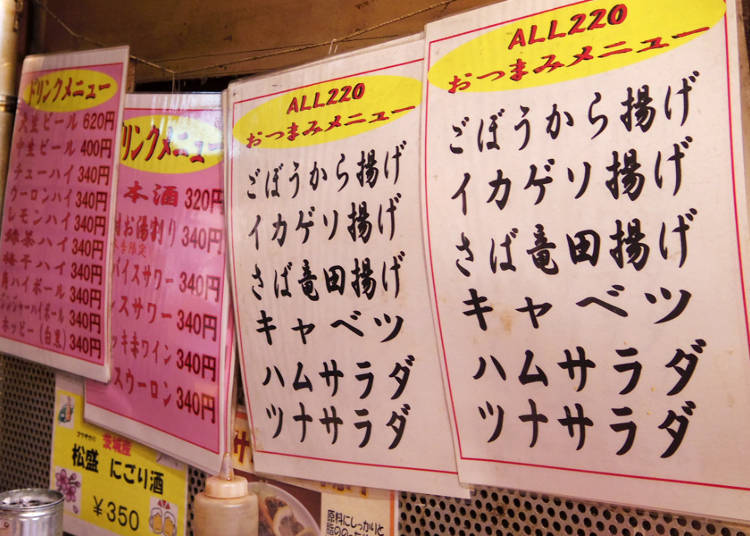 ドリンクメニュー
大生ビール 620円
中生ビール 400円
チューハイ 340円
ウーロンハイ 340円
レモンハイ 340円
緑茶ハイ 340円
梅干ハイ 340円
角ハイボール 340円
ジンジャーハイボール 340円
ホッピー(白黒) 340円
ドリンクメニュー
本酒 320円
お湯割り 340円
340円
イスサワー 340円
スサワー 340円
ッキ赤ワイン 340円
スウーロン 340円
ALL220
おつまみメニュー
ごぼうから揚げ
イカゲソ揚げ
さば竜田揚げ
キャベツ
ハムサラダ
ツナサラダ
ALL220
おつまみメニュー
ごぼうから揚げ
イカゲソ揚げ
さば竜田揚げ
キャベツ
ハムサラダ
ツナサラダ
茨城産
松盛 にごり酒
¥350
原料にしっかりと